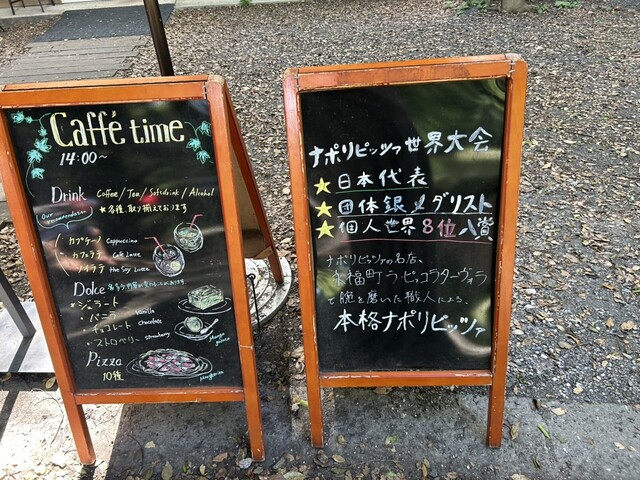 Caffé time
14:00~
Drink Coffee/Tea/Softdrink/Alcohol
Our recommendation
★各種、取り揃えております
カプチーノ Cappuccino
カフェラテ Cafe Lacce
ソイラテ Hot Soy Lacce
Dolce
★ジェラート
バニラ Vanilla
チョコレート chocolate
ストロベリー strawberry
Pizza
10種
Margherita
ナポリピッツァ世界大会
★日本代表
★団体銀メダリスト
★個人世界8位入賞
ナポリピッツァの名店、
永福町ラ・ピッコラターヴォラ
で腕を磨いた職人による、
本格ナポリピッツァ